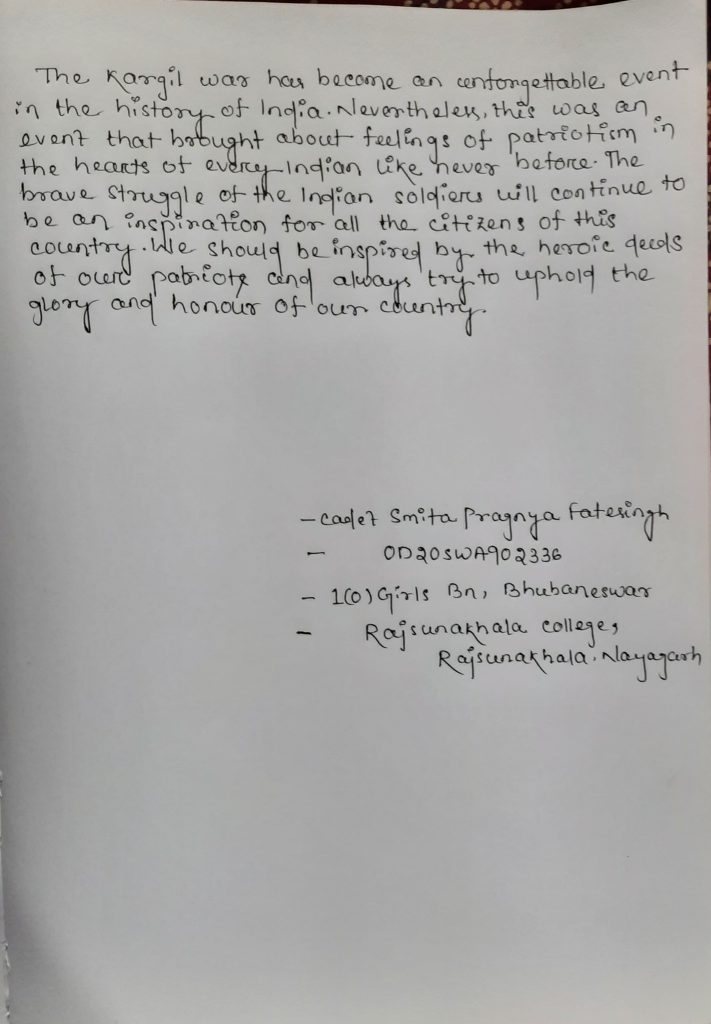 The Kargil war has become an unforgettable event
in the history of India. Nevertheless, this was an
event that brought about feelings of patriotism in
the hearts of every Indian like never before. The
brave struggle of the Indian soldiers will continue to
be an inspiration for all the citizens of this
country. We should be inspired by the heroic deeds
of our patriots and always try to uphold the
glory and honour of our country.
- Cadet Smita Pragnya Fatesingh
- OD20SWA902336
- 1(O) Girls Bn, Bhubaneswar
- Rajsunakhala College,
Rajsunakhala, Nayagarh